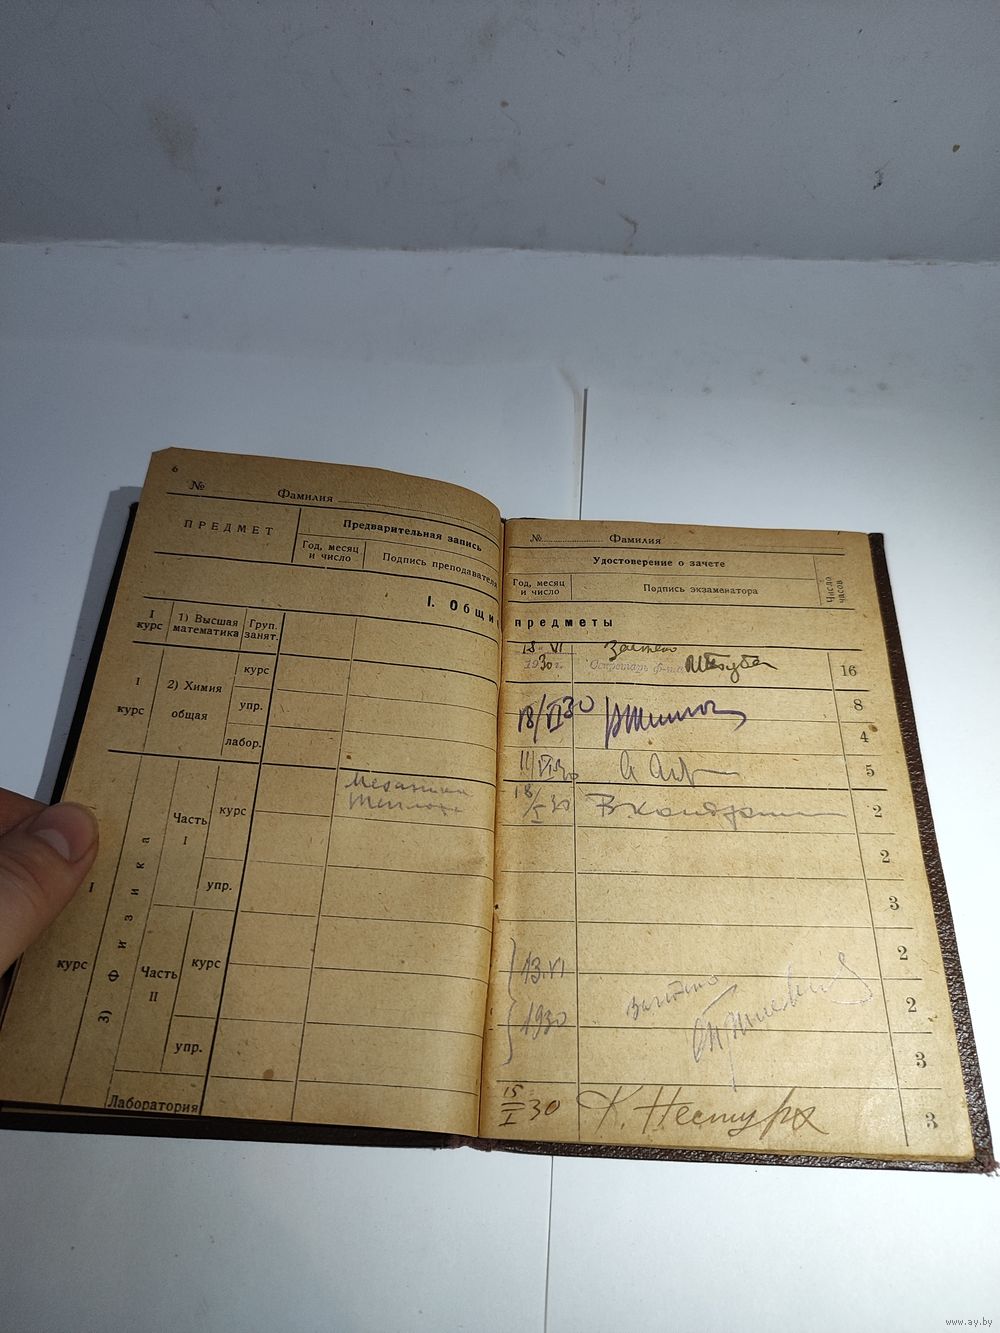 6
№ Фамилия
ПРЕДМЕТ
Предварительная запись
Год, месяц и число
Подпись преподавателя
I. Общи
I курс
1) Высшая математика
Груп. занят.
I курс
2) Химия общая
курс
упр.
лабор.
I курс
3) Физика
Часть I
курс
Механика
упр.
Часть II
курс
упр.
Лаборатория
№ Фамилия
Удостоверение о зачете
Год, месяц и число
Подпись экзаменатора
Число часов
предметы
18 VI 1930 г. Зачтено 16
18/VI 30 8
4
11/VI 30 5
18/I 30 2
2
3
2
13.VI 1930 Зачтено 2
3
15/I 30 К. Нестурх 3
www.ay.by